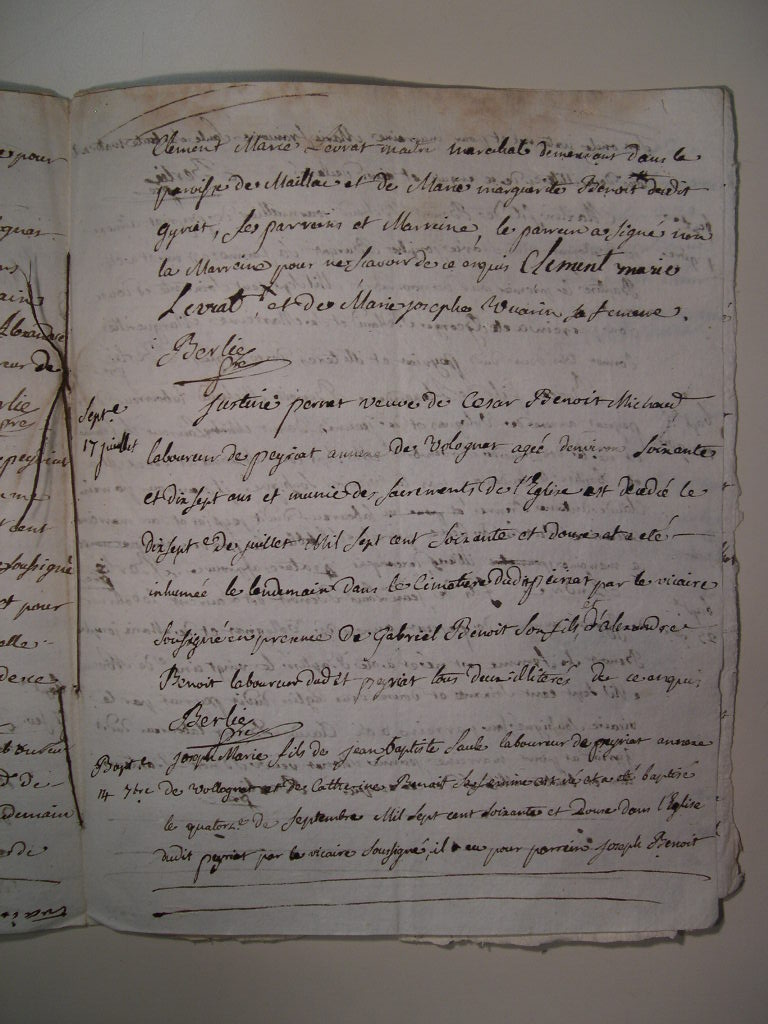 pour
Clement Marie Levrat maitre marechal demeurant dans la
paroisse de Maillac et de Marie marguerite Benoit dudit
gyriat, ses parrains et Marreine, le parrein a signé non
la Marreine pour ne scavoir de ce enquis Clement marie
Levrat, et de Marie josephe Vuarin sa femme.
Berlie
pre
Sept.e
17 juillet
justine perret veuve de Cesar Benoit Michaud
laboureur de peyriat annexe de Volognat ageé d'environ soixante
et dix sept ans et munie des sacrements de l'Eglise est decedée le
dix sept.e de juillet Mil sept cent soixante et douze et a eté
inhumée le lendemain dans le Cimetiere dudit peiriat par le vicaire
soussigné en presence de Gabriel Benoit son fils et d'alexandre
Benoit laboureur dudit peyriat tous deux illiterés de ce enquis
Berlie
pre
Bapt.e
14 7bre
joseph Marie fils de jean baptiste Saule laboureur de peyriat annexe
de Vollognat et de Catherine Benoit sa femme est né et a eté baptisé
le quatorze de Septembre Mil sept cent soixante et Douze dans l'Eglise
dudit peyriat par le vicaire soussigné, il a eu pour parrein joseph Benoit